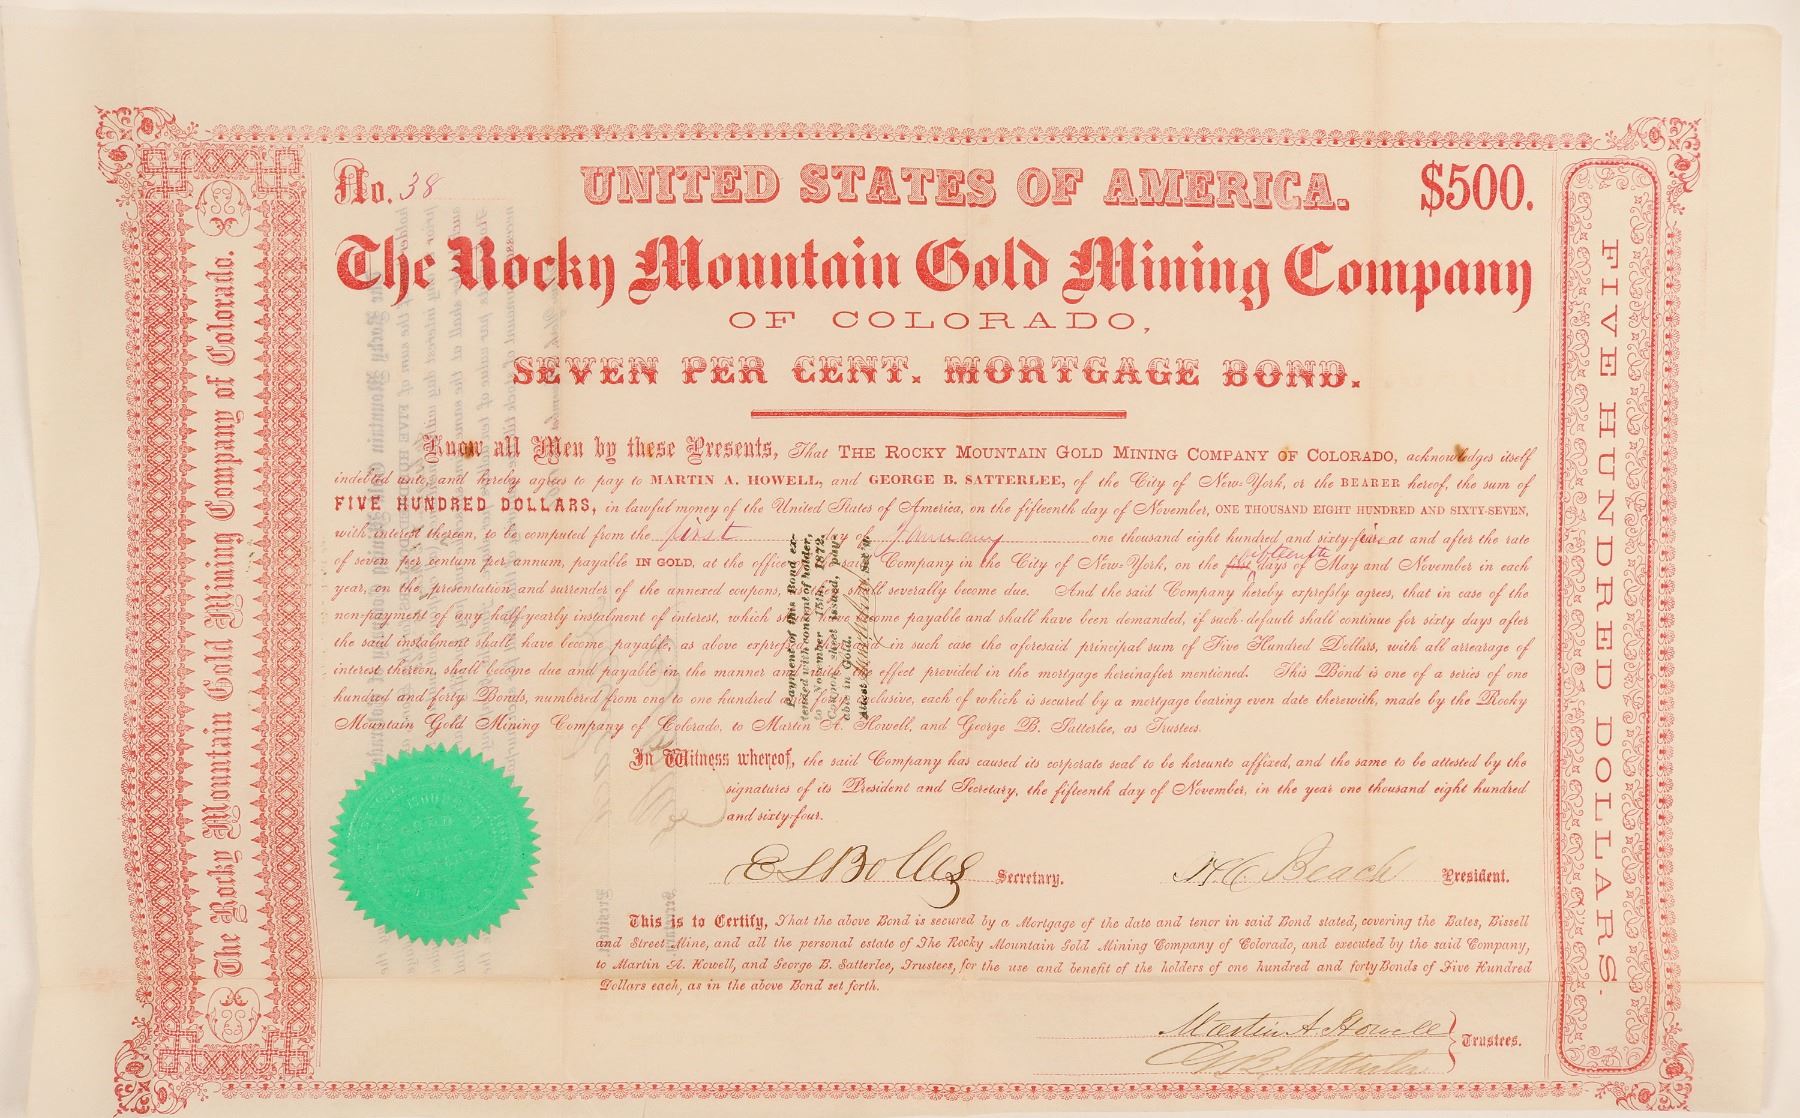 The Rocky Mountain Gold Mining Company of Colorado.
No. 38
UNITED STATES OF AMERICA.
$500.
The Rocky Mountain Gold Mining Company
OF COLORADO,
SEVEN PER CENT. MORTGAGE BOND.
Know all Men by these Presents, That THE ROCKY MOUNTAIN GOLD MINING COMPANY OF COLORADO, acknowledges itself
indebted unto, and hereby agrees to pay to MARTIN A. HOWELL, and GEORGE B. SATTERLEE, of the City of New-York, or the BEARER hereof, the sum of
FIVE HUNDRED DOLLARS, in lawful money of the United States of America, on the fifteenth day of November, ONE THOUSAND EIGHT HUNDRED AND SIXTY-SEVEN,
with interest thereon, to be computed from the first day of January one thousand eight hundred and sixty-five at and after the rate
of seven per centum per annum, payable IN GOLD, at the office of the said Company in the City of New-York, on the fifteenth days of May and November in each
year, on the presentation and surrender of the annexed coupons, as they shall severally become due. And the said Company hereby expressly agrees, that in case of the
non-payment of any half-yearly instalment of interest, which shall have become payable and shall have been demanded, if such default shall continue for sixty days after
the said instalment shall have become payable, as above expressed in such case the aforesaid principal sum of Five Hundred Dollars, with all arrearage of
interest thereon, shall become due and payable in the manner and with the effect provided in the mortgage hereinafter mentioned. This Bond is one of a series of one
hundred and forty Bonds, numbered from one to one hundred and forty inclusive, each of which is secured by a mortgage bearing even date therewith, made by the Rocky
Mountain Gold Mining Company of Colorado, to Martin A. Howell, and George B. Satterlee, as Trustees.
Payment of this Bond ex-
tended with consent of holder,
to November 15th, 1872.
Coupon sheet issued, pay-
able in Gold.
attest Sec'y.
In Witness whereof, the said Company has caused its corporate seal to be hereunto affixed, and the same to be attested by the
signatures of its President and Secretary, the fifteenth day of November, in the year one thousand eight hundred
and sixty-four.
E S Bolles Secretary.
H C Beach President.
This is to Certify, That the above Bond is secured by a Mortgage of the date and tenor in said Bond stated, covering the Bates, Bissell
and Street Mine, and all the personal estate of The Rocky Mountain Gold Mining Company of Colorado, and executed by the said Company,
to Martin A. Howell, and George B. Satterlee, Trustees, for the use and benefit of the holders of one hundred and forty Bonds of Five Hundred
Dollars each, as in the above Bond set forth.
Martin A. Howell
G B Satterlee
Trustees.
FIVE HUNDRED DOLLARS.